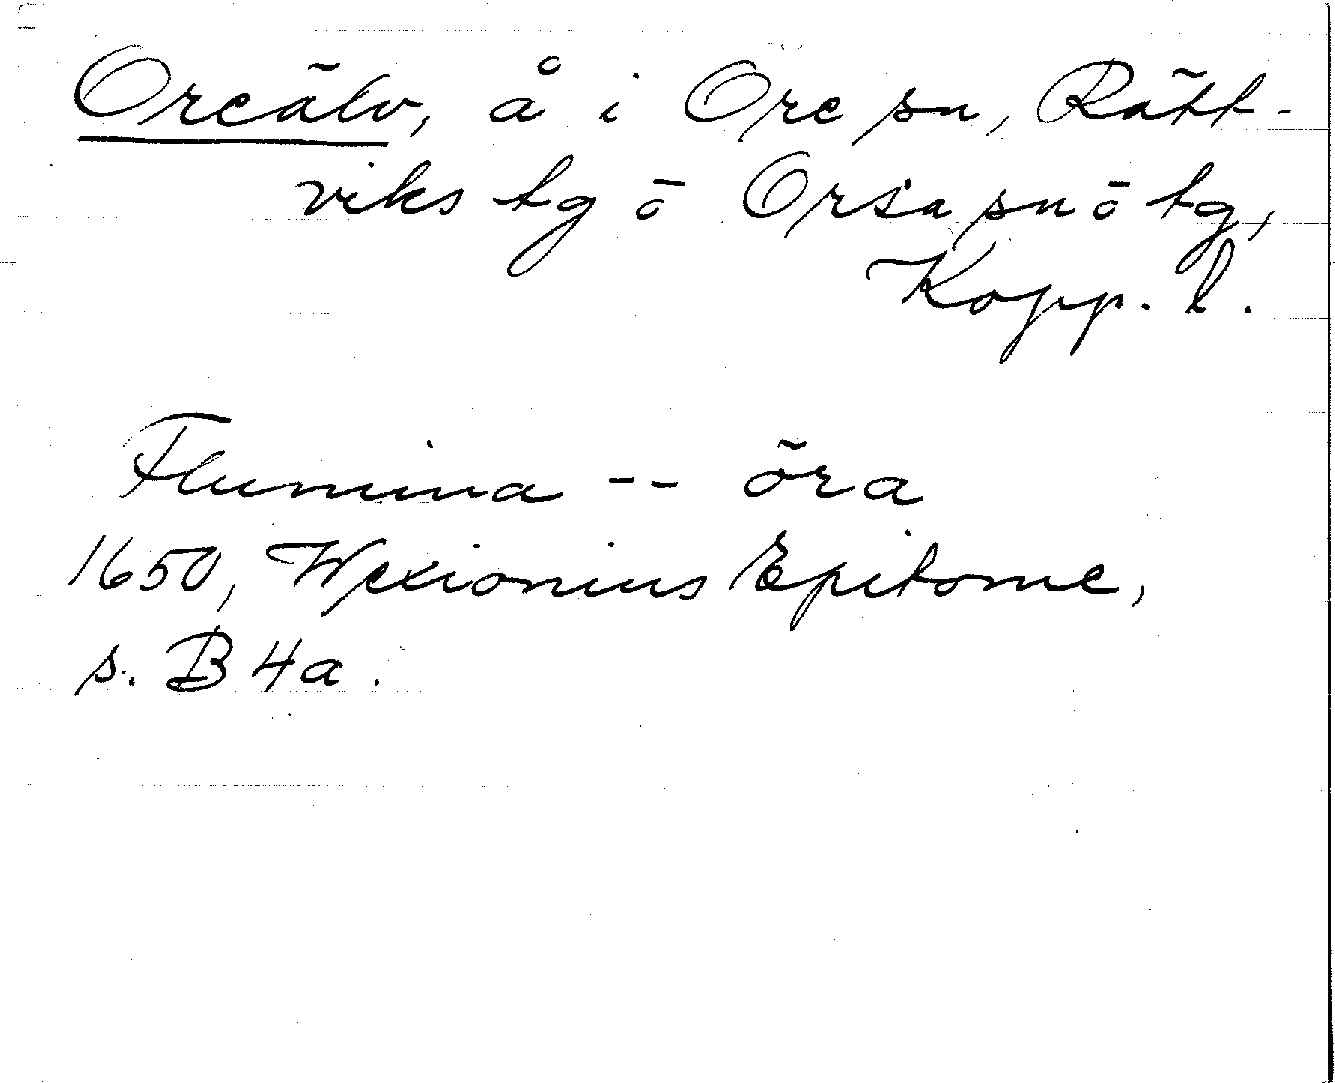 Oreälv, å i Ore sn, Rätt-
viks tg o Orsa sn o tg,
Kopp. l.
Flumina -- öra
1650, Wexionius Epitome,
s. B 4a.